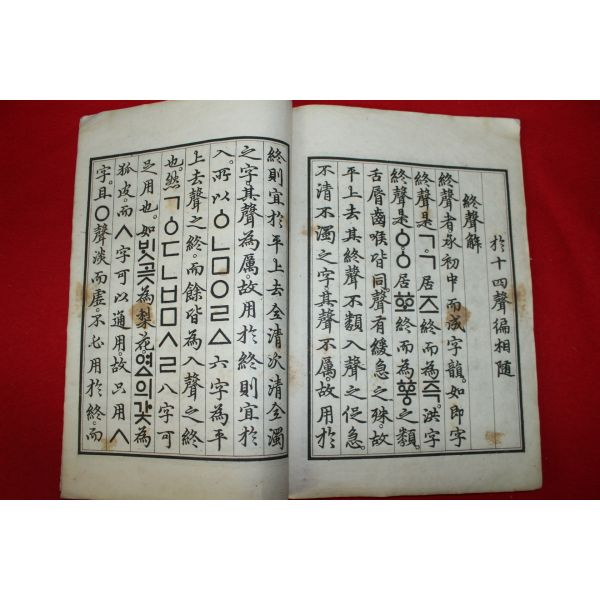 於十四聲徧相隨
終聲解
終聲者承初中而成字韻。如即字
終聲是ㄱ。ㄱ居즈終而為즉。洪字
終聲是ㆁ。ㆁ居ᅘᅩ終而為ᅘᅩᇰ之類。
舌脣齒喉皆同。聲有緩急之殊。故
平上去其終聲不類入聲之促急。
不清不濁之字。其聲不厲。故用於
終則宜於平上去。全清次清全濁
之字。其聲為厲。故用於終則宜於
入。所以ㆁㄴㅁㅇㄹㅿ六字為平
上去聲之終。而餘皆為入聲之終
也。然ㄱㆁㄷㄴㅂㅁㅅㄹ八字可
足用也。如빗곶為梨花。여ᇫ의갗為
狐皮。而ㅅ字可以通用。故只用ㅅ
字。且ㅇ聲淡而虛。不必用於終。而